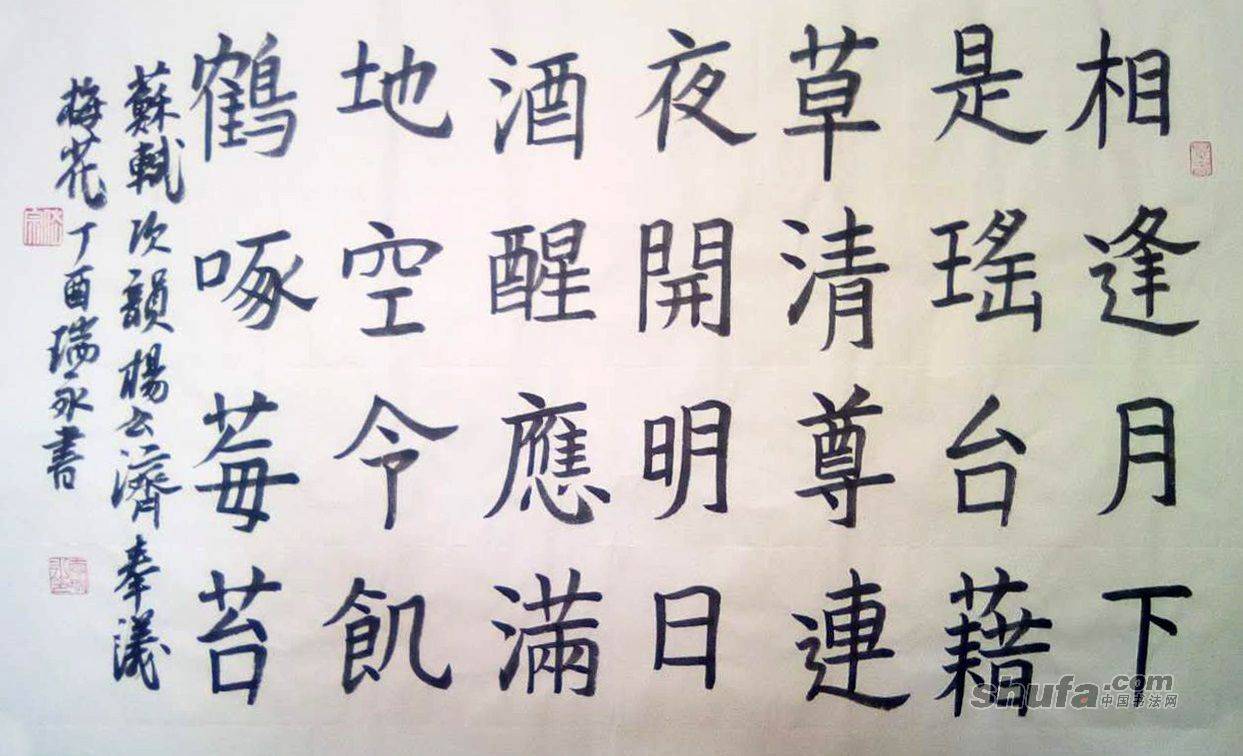 相逢月下
是瑤台藉
草清尊連
夜開明日
酒醒應滿
地空令飢
鶴啄莓苔
蘇軾次韻楊公濟奉議
梅花丁酉瑞永書
shufa.com
中国书法网